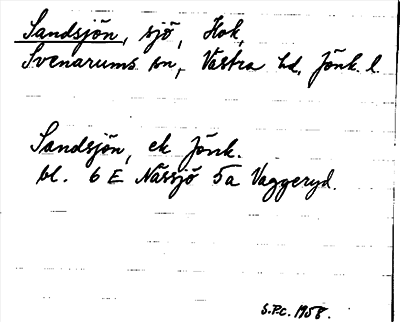 Sandsjön, sjö, Hok,
Svenarums sn, Västra hd, Jönk. l.
Sandsjön, ek Jönk.
bl. 6 E Nässjö 5a Vaggeryd.
S.P.C. 1958.